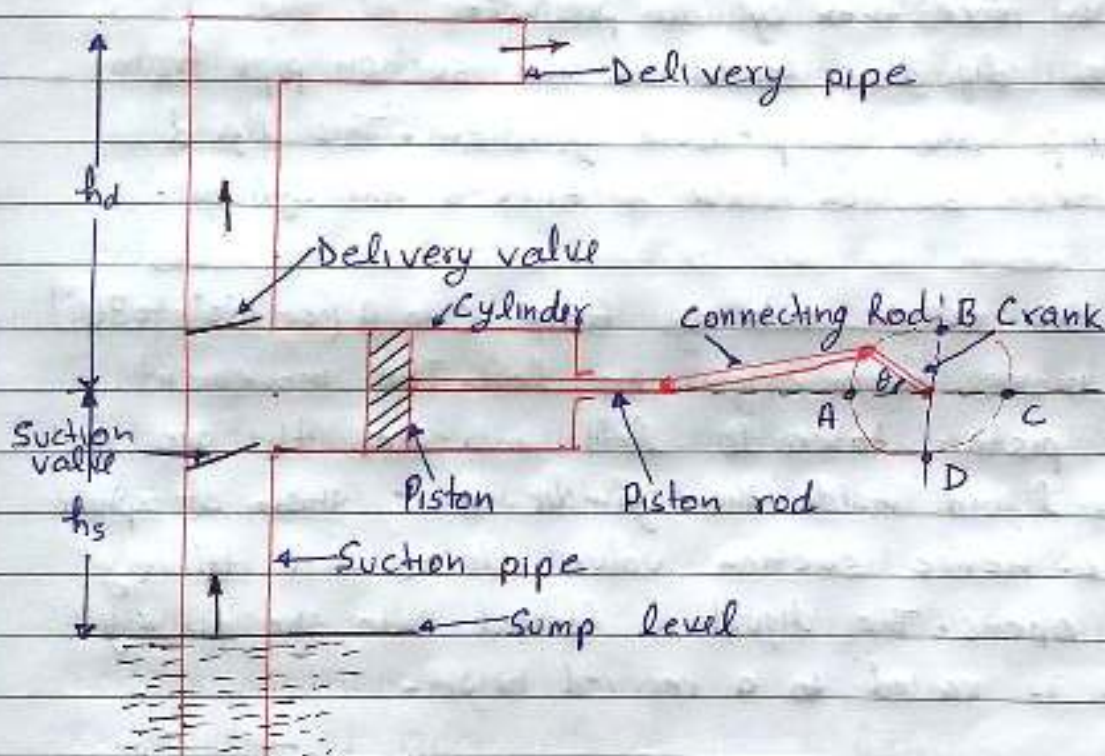 Delivery pipe
hd
Delivery valve
Cylinder
Connecting Rod
B
Crank
θ
A
C
Suction
valve
D
Piston
Piston rod
hs
Suction pipe
Sump level